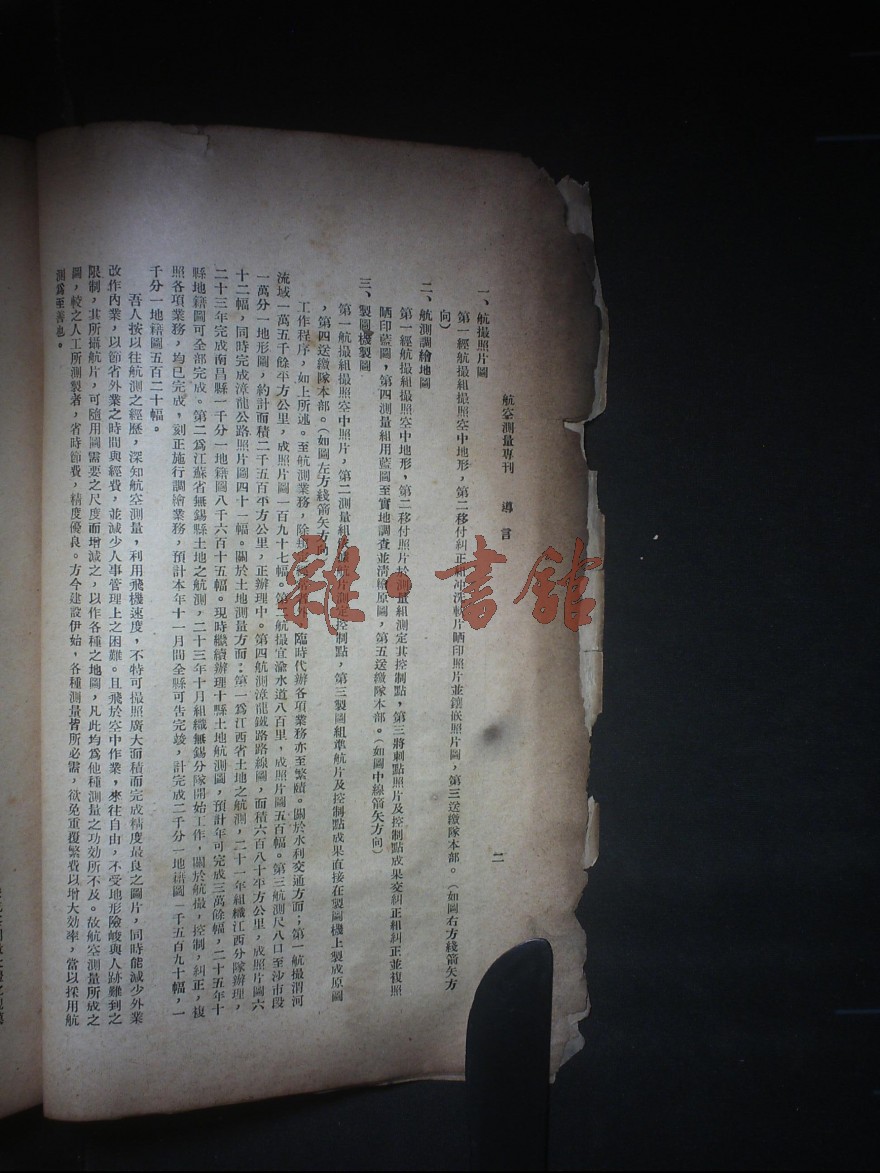 航空測量專刊　導言
二
一、航撮照片圖
第一經航撮組撮照空中地形，第二移付糾正組冲洗軟片晒印照片並鑲嵌照片圖，第三送繳隊本部。（如圖右方綫箭矢方
向）
二、航測調繪地圖
第一經航撮組撮照空中地形，第二移付照片於測量組測定其控制點，第三將刺點照片及控制點成果交糾正組糾正並複照
晒印藍圖，第四測量組用藍圖至實地調查並清繪原圖，第五送繳隊本部。（如圖中線箭矢方向）
三、製圖機製圖
第一航撮組撮照空中照片，第二測量組依據航片測定控制點，第三製圖組準航片及控制點成果直接在製圖機上製成原圖
，第四送繳隊本部。（如圖左方綫箭矢方向）
工作程序，如上所述。至航測業務，除 臨時代辦各項業務亦至繁賾。關於水利交通方面；第一航撮渭河
流域一萬五千餘平方公里，成照片圖一百九十七幅。第二航撮宜渝水道八百里，成照片圖五百幅。第三航測尺八口至沙市段
一萬分一地形圖，約計面積二千五百平方公里，正辦理中。第四航測漳龍鐵路路線圖，面積六百八十平方公里，成照片圖六
十二幅，同時完成漳龍公路照片圖四十一幅。關於土地測量方面：第一爲江西省土地之航測，二十一年組織江西分隊辦理，
二十三年完成南昌縣一千分一地籍圖八千六百十五幅。現時繼續辦理十縣土地航測圖，預計年可完成三萬餘幅，二十五年十
縣地籍圖可全部完成。第二爲江蘇省無錫縣土地之航測，二十三年十月組織無錫分隊開始工作，關於航撮，控制，糾正，複
照各項業務，均已完成，刻正施行調繪業務，預計本年十一月間全縣可告完竣，計完成二千分一地籍圖一千五百九十幅，一
千分一地籍圖五百二十幅。
吾人按以往航測之經歷，深知航空測量，利用飛機速度，不特可撮照廣大面積而完成精度最良之圖片，同時能減少外業
改作內業，以節省外業之時間與經費，並減少人事管理上之困難。且飛於空中作業，來往自由，不受地形險峻與人跡難到之
限制，其所攝航片，可隨用圖需要之尺度而增減之，以作各種之地圖，凡此均爲他種測量之功効所不及。故航空測量所成之
圖，較之人工所測製者，省時節費，精度優良。方今建設伊始，各種測量皆所必需，欲免重覆繁費以增大効率，當以採用航
測爲至善也。
雜書館